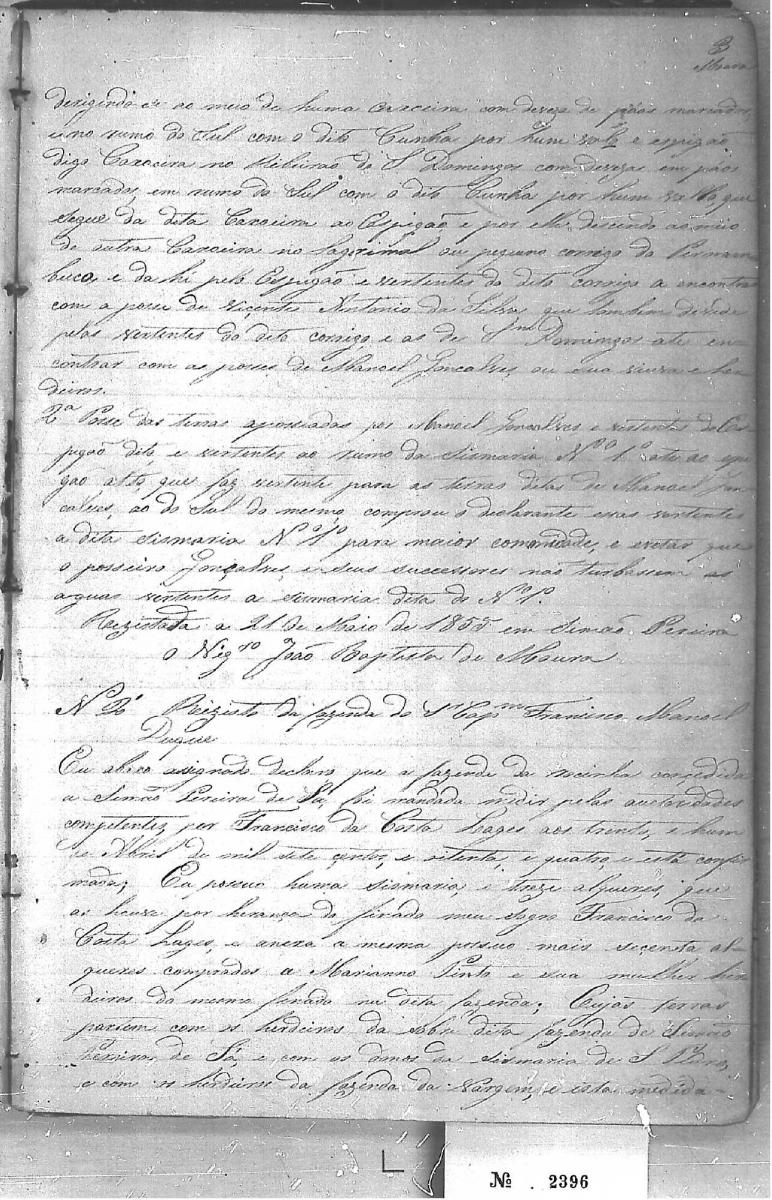 3
Moura
derigindo-se ao meio de huma Caxoeira com deveza de páos marcados,
e no rumo do Sul com o dito Cunha por hum vallo e espigão
digo Caxoeira no Ribeirão de S Domingos com devezas em páos
marcados, em rumo do Sul com o dito Cunha por hum vallo, que
segue da dita Caxoeira ao Espigão e por elle descendo ao meio
de outra Caxoeira no lagrimal ou pequeno corrigo do Pernam
buco, e dahi pelo Espigão e vertentes do dito corrigo a encontrar
com a posse de Vicente Antonio da Silva, que tambem devide
pelas vertentes do dito corrigo e as de S Domingos até en
contrar com as posses de Manoel Gonçalves ou sua viuva e her
deiros.
2ª Posse das terras apossiadas por Manoel Gonçalves e vertentes do Es
pigão dito, e vertentes ao rumo da sismaria Nº 1º até ao espi
gão alto, que faz vertente para as terras ditas de Manoel Gon
calves, ao do Sul do mesmo, comprou o declarante essas vertentes
a dita sismaria Nº 1º para maior comodidade, e evitar que
o posseiro Gonçalves, e seus successores não turbassem as
aguas vertentes a sismaria dita do Nº 1º.
Rezistada a 21 de Maio de 1855 em Simão Pereira
O Vigrº João Baptista de Moura
N 2º Rezisto da fazenda do Sr Capm Francisco Manoel
Duque
Eu abaixo asignado declaro que a fazenda da rocinha concedida
a Simão Pereira de Sá, foi mandada midir pelas auctoridades
competentes por Francisco da Costa Lages aos trinta, e hum
de Abril de mil sete centos, e setenta, e quatro, e está confir
mada; Eu possuo huma sismaria, e treze alqueres, que
as houve por herança do finado meu sogro Francisco da
Costa Lages, e anexa a mesma possuo mais secenta al
queres comprados a Marianno Pinto e sua mulher her
deiros do mesmo finado na dita fazenda; Cujas terras
partem com os herdeiros da sobre dita fazenda de Simão
Pereira de Sá, e com os donos da sismaria de S Pedro,
e com os herdeiros da fazenda da Vargem, e esta medida-
Nº . 2396